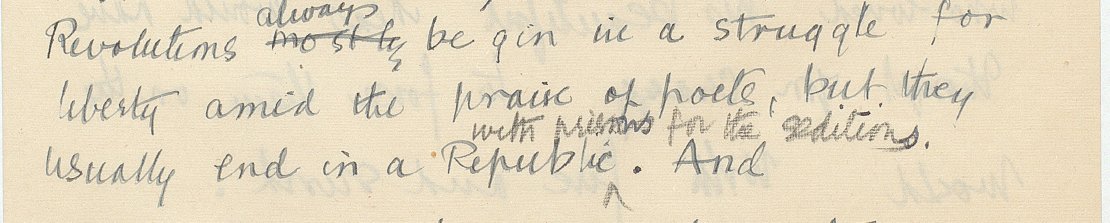 always
Revolutions mostly begin in a struggle for
liberty amid the praise of poets, but they
with prisons for the seditious.
usually end in a Republic. And